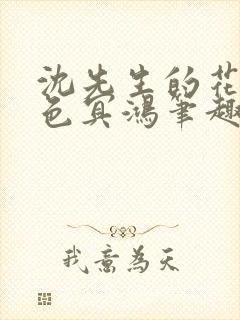 沈先生的花
色冥鴻筆趣
我意為天